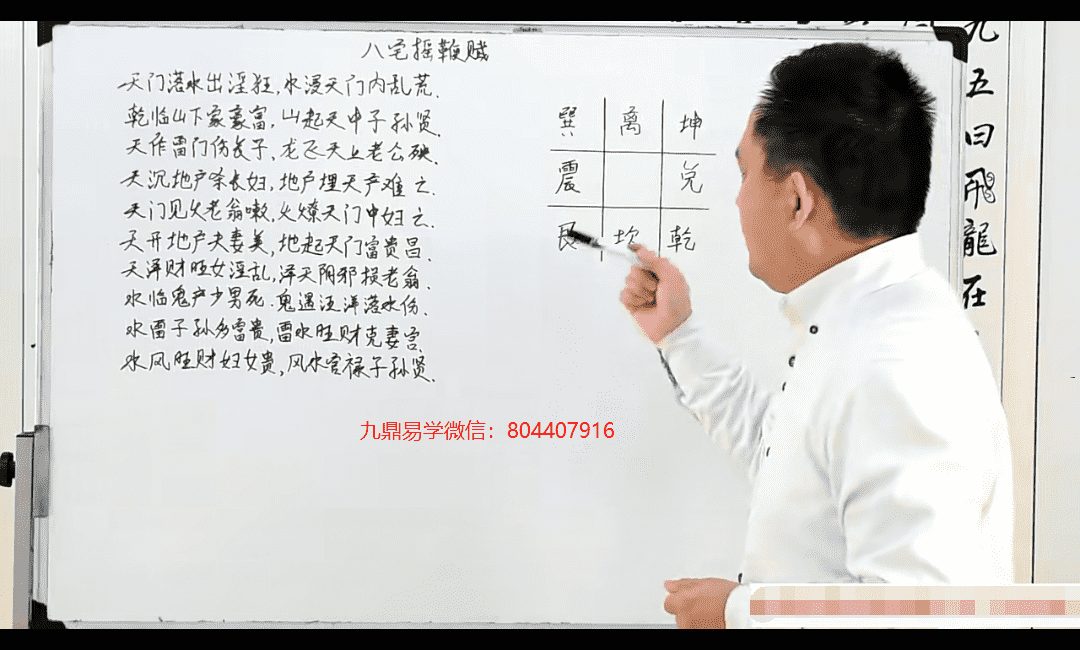 八宅摇鞭赋
天门落水出淫狂,水漫天门内乱荒.
乾临山下家豪富,山起天中子孙贤.
天作雷门伤长子,龙飞天上老公殃.
天沉地户杀长妇,地户埋天产难亡.
天门见火老翁嗽,火燎天门中妇亡.
天开地户夫妻美,地起天门富贵昌.
天泽财旺女淫乱,泽天阴邪损老翁.
水临鬼户少男死.鬼遇汪洋落水伤.
水雷子孙多富贵,雷水旺财克妻宫.
水风旺财妇女贵,风水官禄子孙贤.
巽 离 坤
震 兑
艮 坎 乾
九五曰飛龍在
九鼎易学微信：804407916